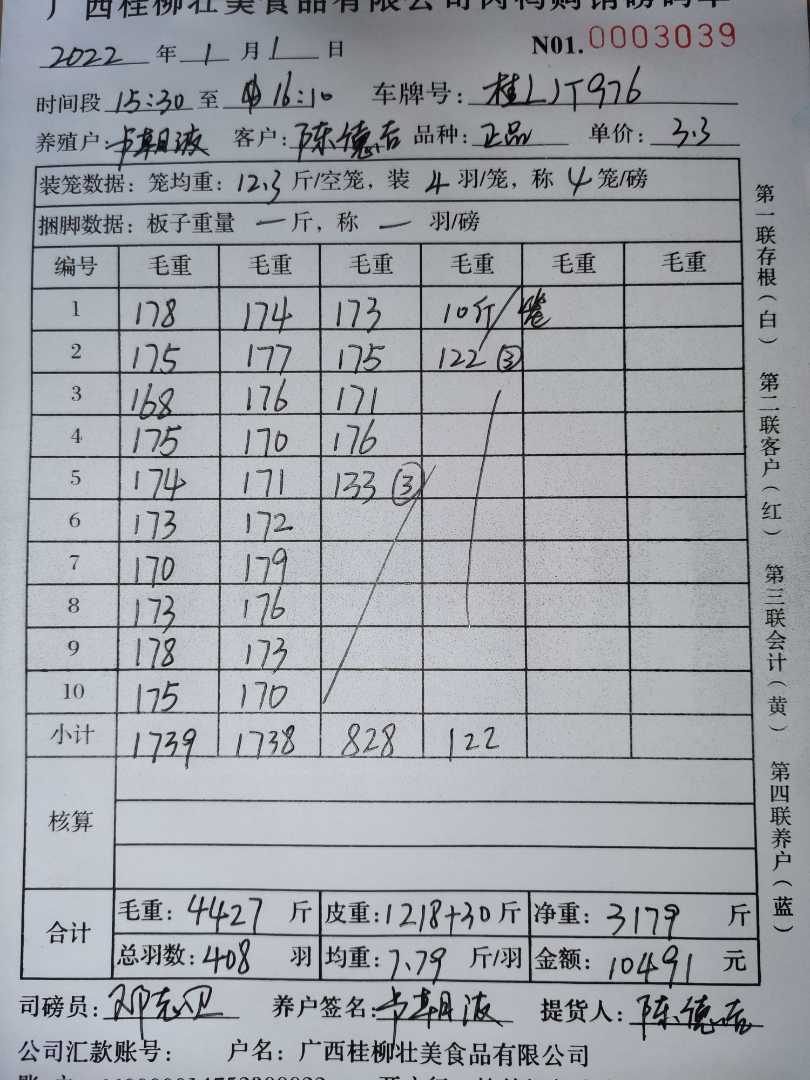 广西桂柳壮美食品有限公司肉鸭购销磅码单
2022 年 1 月 1 日 N01. 0003039
时间段 15:30 至 16:10 车牌号: 桂LJT976
养殖户: 客户: 陈德 品种: 正品 单价: 3.3
装笼数据: 笼均重: 12.3 斤/空笼, 装 4 羽/笼, 称 4 笼/磅
捆脚数据: 板子重量 一 斤, 称 一 羽/磅
编号 毛重 毛重 毛重 毛重 毛重 毛重
1 178 174 173 10斤/笼
2 175 177 175 122 ③
3 168 176 171
4 175 170 176
5 174 171 133 ③
6 173 172
7 170 179
8 173 176
9 178 173
10 175 170
小计 1739 1738 828 122
核算
合计 毛重: 4427 斤 皮重: 1218+30 斤 净重: 3179 斤
总羽数: 408 羽 均重: 7.79 斤/羽 金额: 10491 元
司磅员: 邓志卫 养户签名: 提货人: 陈德
公司汇款账号: 户名: 广西桂柳壮美食品有限公司
第一联存根(白) 第二联客户(红) 第三联会计(黄) 第四联养户(蓝)